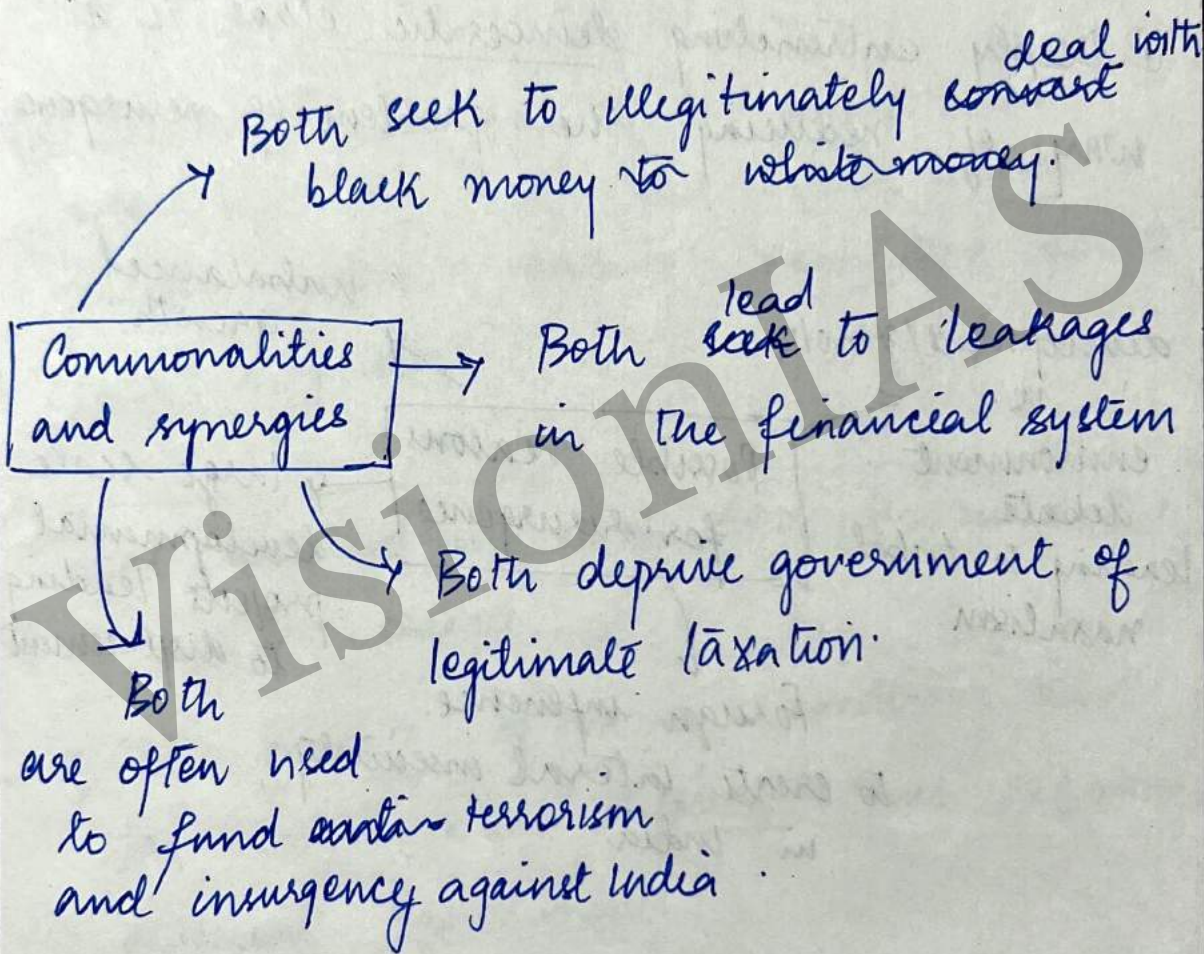 deal with
Both seek to illegitimately convert
black money to white money.
Commonalities
and synergies
lead
Both seek to leakages
in the financial system
Both deprive government of
legitimate taxation.
Both
are often used
to fund terrorism
and insurgency against India.
VisionIAS